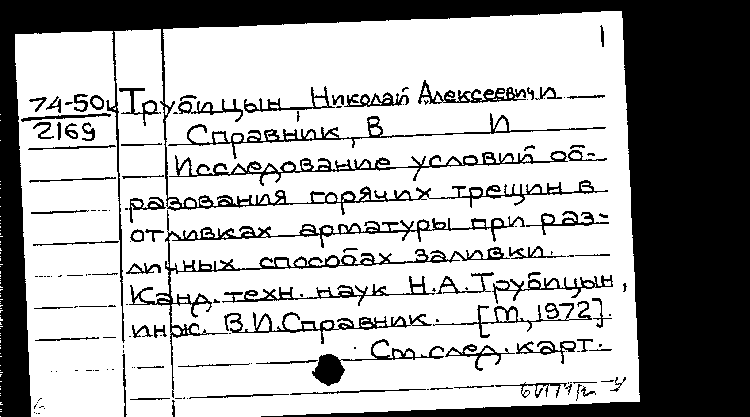 1
74-50к Трубицын, Николай Алексеевич и
2169 Справник, В И
Исследование условий об-
разования горячих трещин в
отливках арматуры при раз-
личных способах заливки.
Канд. техн. наук Н.А. Трубицын,
инж. В.И. Справник. [М., 1972].
См. след. карт.